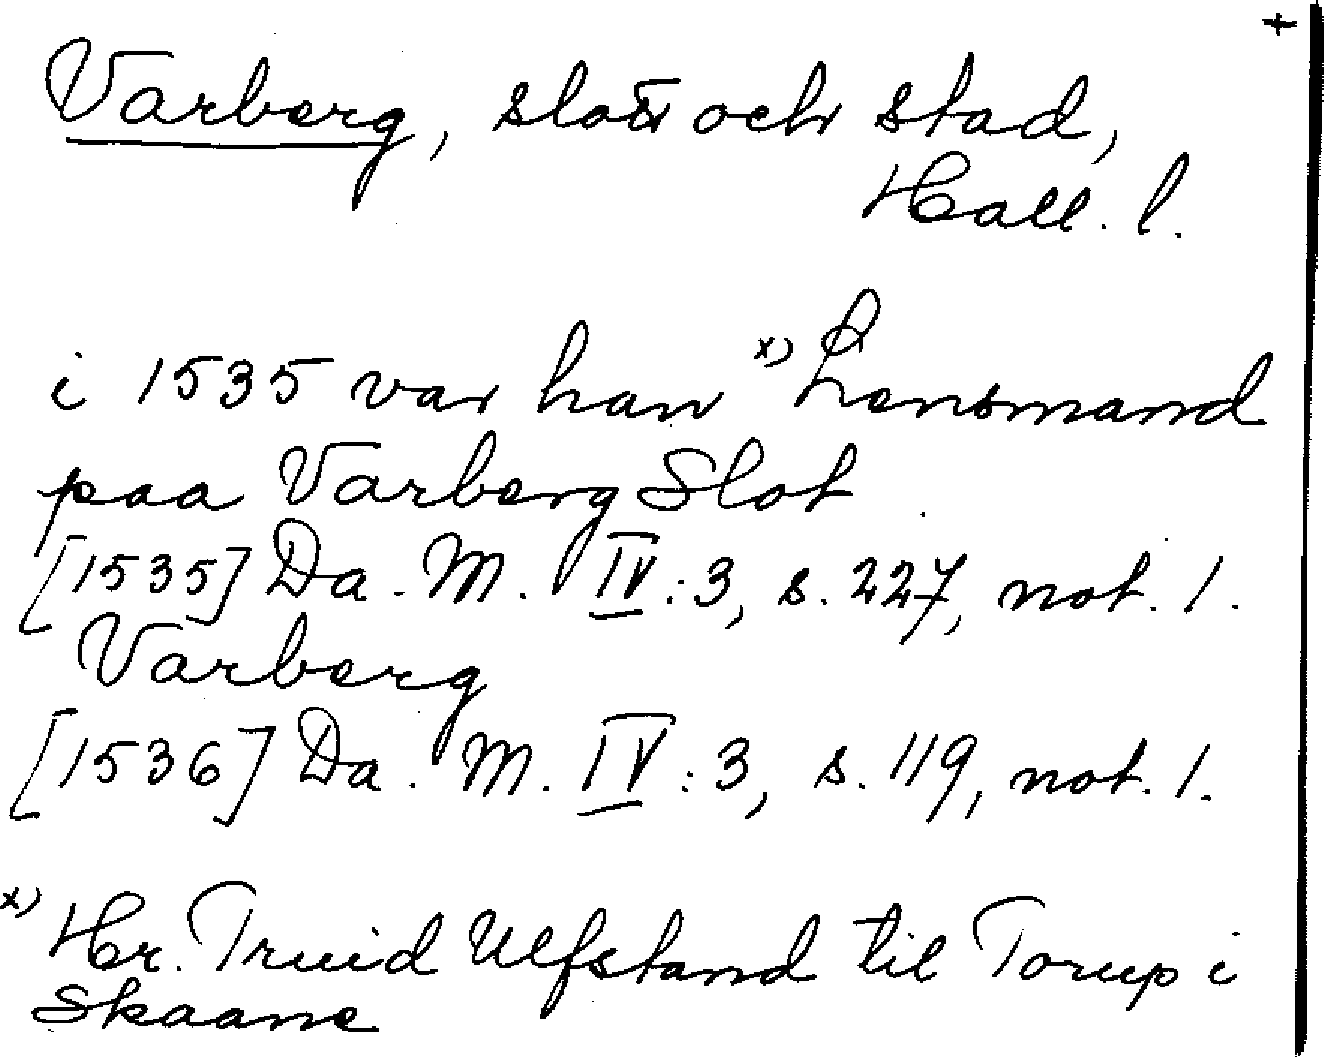 +
Varberg, slott och stad,
Hall. l.
i 1535 var han x) Lensmand
paa Varberg Slot
[1535] Da. M. IV:3, s. 227, not. 1.
Varberg
[1536] Da. M. IV:3, s. 119, not. 1.
x) Hr. Truid Ulfstand til Torup i
Skaane